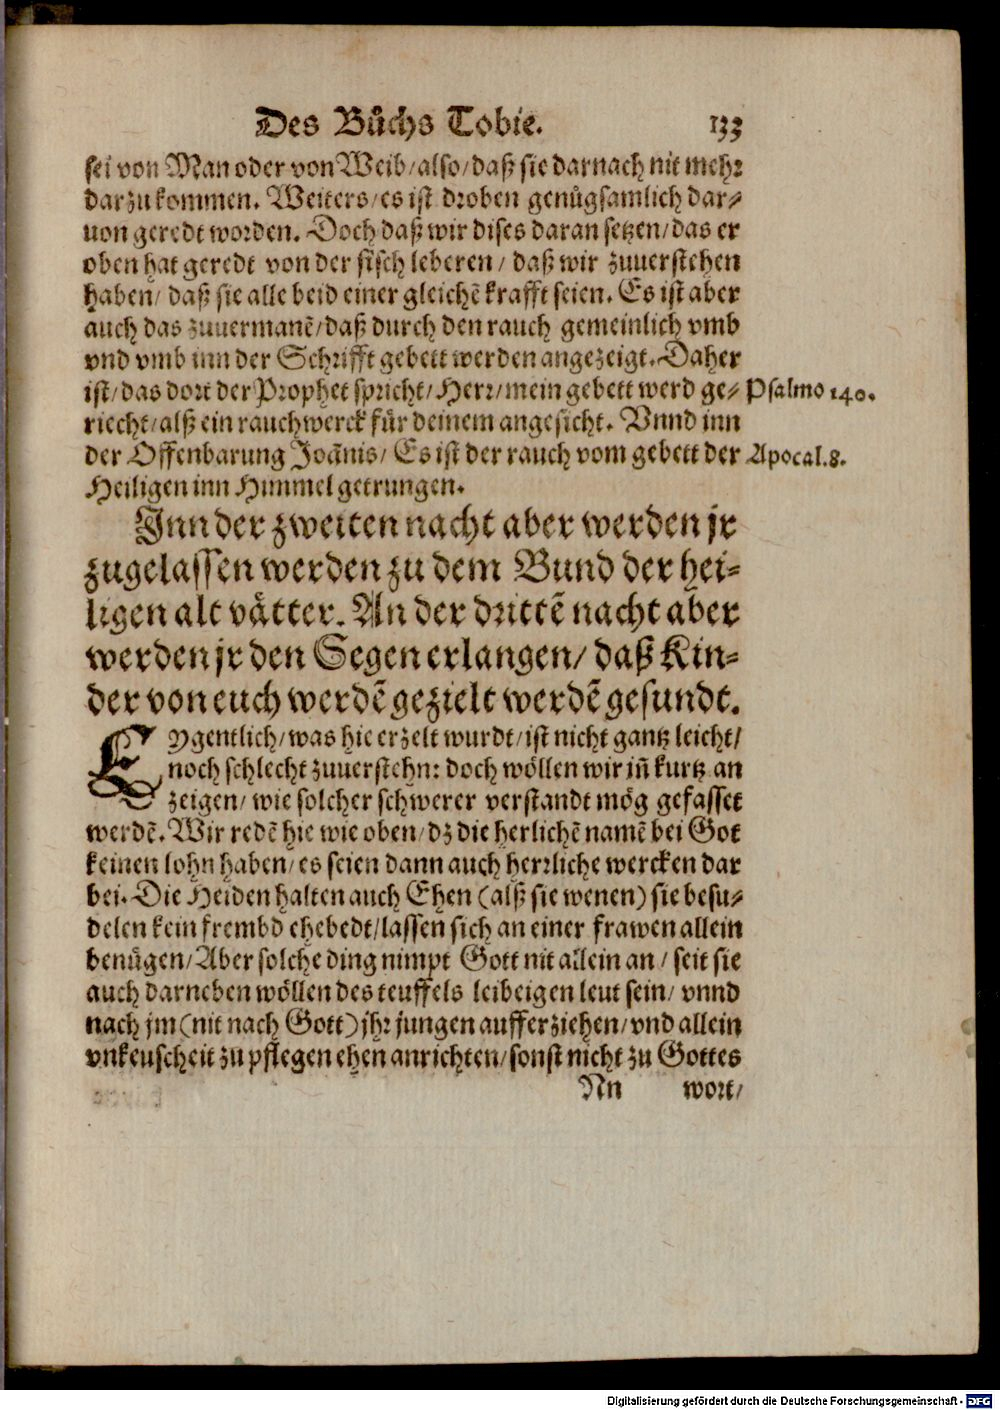 Des Bůchs Tobie. 133
sei von Man oder von Weib/also/daß sie darnach nit mehr
darzu kommen. Weiters/es ist droben genůgsamlich dar⸗
uon geredt worden. Doch daß wir dises daran setzen/das er
oben hat geredt von der fisch leberen/ daß wir zuuerstehen
haben/ daß sie alle beid einer gleichẽ krafft seien. Es ist aber
auch das zuuermanẽ/daß durch den rauch gemeinlich vmb
vnd vmb inn der Schrifft gebett werden angezeigt. Daher
ist/das dort der Prophet spricht/Herr/mein gebett werd ge⸗ Psalmo 140.
riecht/alß ein rauchwerck für deinem angesicht. Vnnd inn
der Offenbarung Joãnis/ Es ist der rauch vom gebett der Apocal.8.
Heiligen inn Himmel getrungen.
Inn der zweiten nacht aber werden jr
zugelassen werden zu dem Bund der hei⸗
ligen alt vätter. An der drittẽ nacht aber
werden jr den Segen erlangen/ daß Kin⸗
der von euch werdẽ gezielt werdẽ gesundt.
Eygentlich/was hie erzelt wurdt/ist nicht gantz leicht/
noch schlecht zuuerstehn: doch wöllen wir in̄ kurtz an
zeigen/ wie solcher schwerer verstandt mög gefasset
werdẽ. Wir redẽ hie wie oben/dz die herlichẽ namẽ bei Got
keinen lohn haben/es seien dann auch herrliche wercken dar
bei. Die Heiden halten auch Ehen (alß sie wenen) sie besu⸗
delen kein frembd ehebedt/lassen sich an einer frawen allein
benügen/Aber solche ding nimpt Gott nit allein an/ seit sie
auch darneben wöllen des teuffels leibeigen leut sein/ vnnd
nach jm (nit nach Gott) jhr jungen aufferziehen/vnd allein
vnkeuscheit zu pflegen ehen anrichten/sonst nicht zu Gottes
Nn wort/
Digitalisierung gefördert durch die Deutsche Forschungsgemeinschaft - DFG